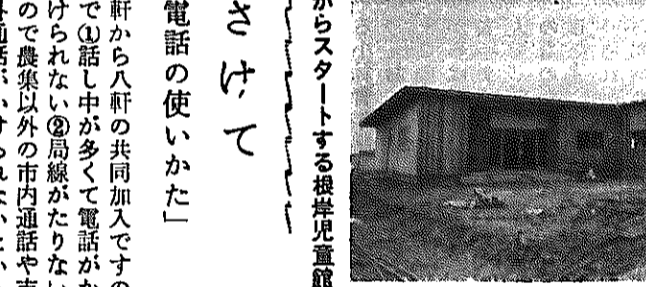 からスタートする根岸児童館
さけて
電話の使いかた」
軒から八軒の共同加入ですの
で①話し中が多くて電話がか
けられない②局線がたりない
ので農集以外の市内通話や市